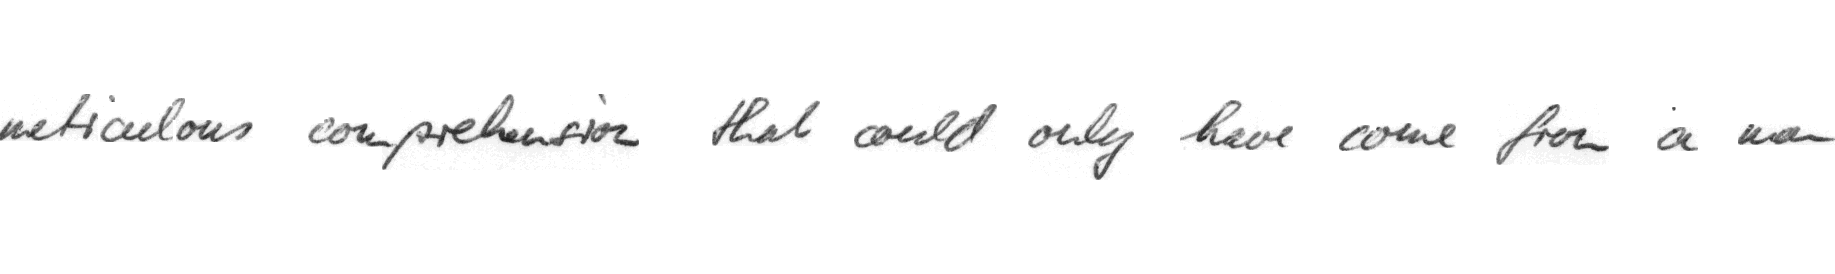 meticulous comprehension that could only have come from a man